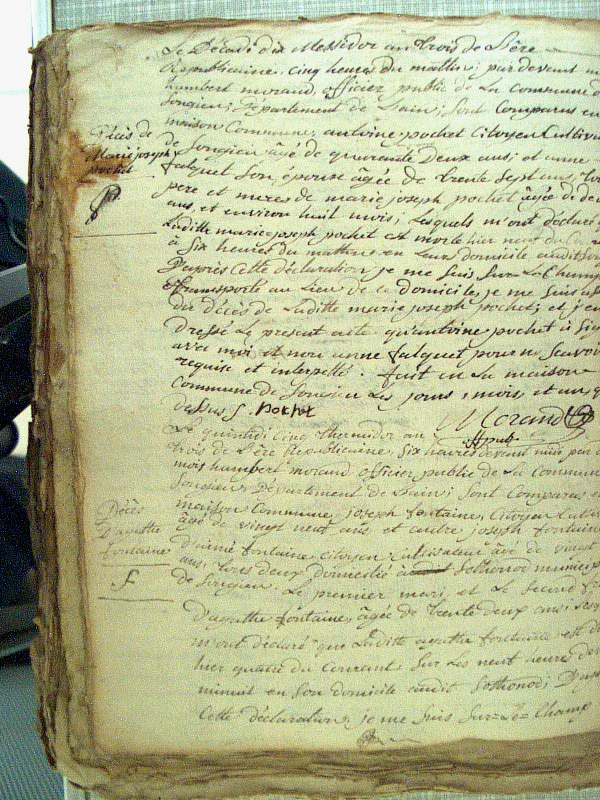 Le Décadi dix Messidor an trois de L'ère
Republicaine, cinq heures du mattin; par devant m
humbert morand officier public de La Commune d
Songieu, Département de Lain; sont Comparus en
maison Commune, antoine pochet Citoyen Cultiva
Décés de
Marie joseph
pochet
de Songieu âgé de quarante Deux ans; et anne
falquet Son épouse âgée de trente sept ans, 
pere et meres de marie joseph pochet âgée de de
ans et environ huit mois; Lesquels m'ont déclaré
Laditte marie joseph pochet est morte hier neuf du
à Six heures du mattin en Leurs domicile audit Son
D'après Cette déclaration je me Suis Sur Le Champ
transporté au Lieu de ce domicile, je me suis as
du décès de Laditte marie joseph pochet; et j'en
Dressé Le present acte qu'antoine pochet à Sig
avec moi et non anne falquet pour ne Scavoir
requise et interpellé. fait en La maison
Commune de Songieu Les jours, mois, et an, q
dessus f. Pochet
Morand
Le quintidi Cinq thermidor an
trois de L'ère Republicaine, Six heures devant midi par
mois humbert morand officier public de La Commun
Songieu, Département de Lain; sont Comparus e
maison Commune, joseph fontaine, Citoyen Cultiv
Décès
D'agathe
fontaine
âgé de vingt neuf ans et autre joseph fontain
D'aimé fontaine citoyen Cultivateur âgé de vingt
ans, tores deux domicilié à Sothonod
de Songieu, Le premier mari, et Le Second fr
D'agathe fontaine, âgée de trente deux ans;
m'ont déclaré que Laditte agathe fontaine est d
hier quatre du Courant Sur Les neuf heures de
minuit en Son domicile audit Sothonod; D'ap
Cette déclaration, je me Suis Sur Le Champ